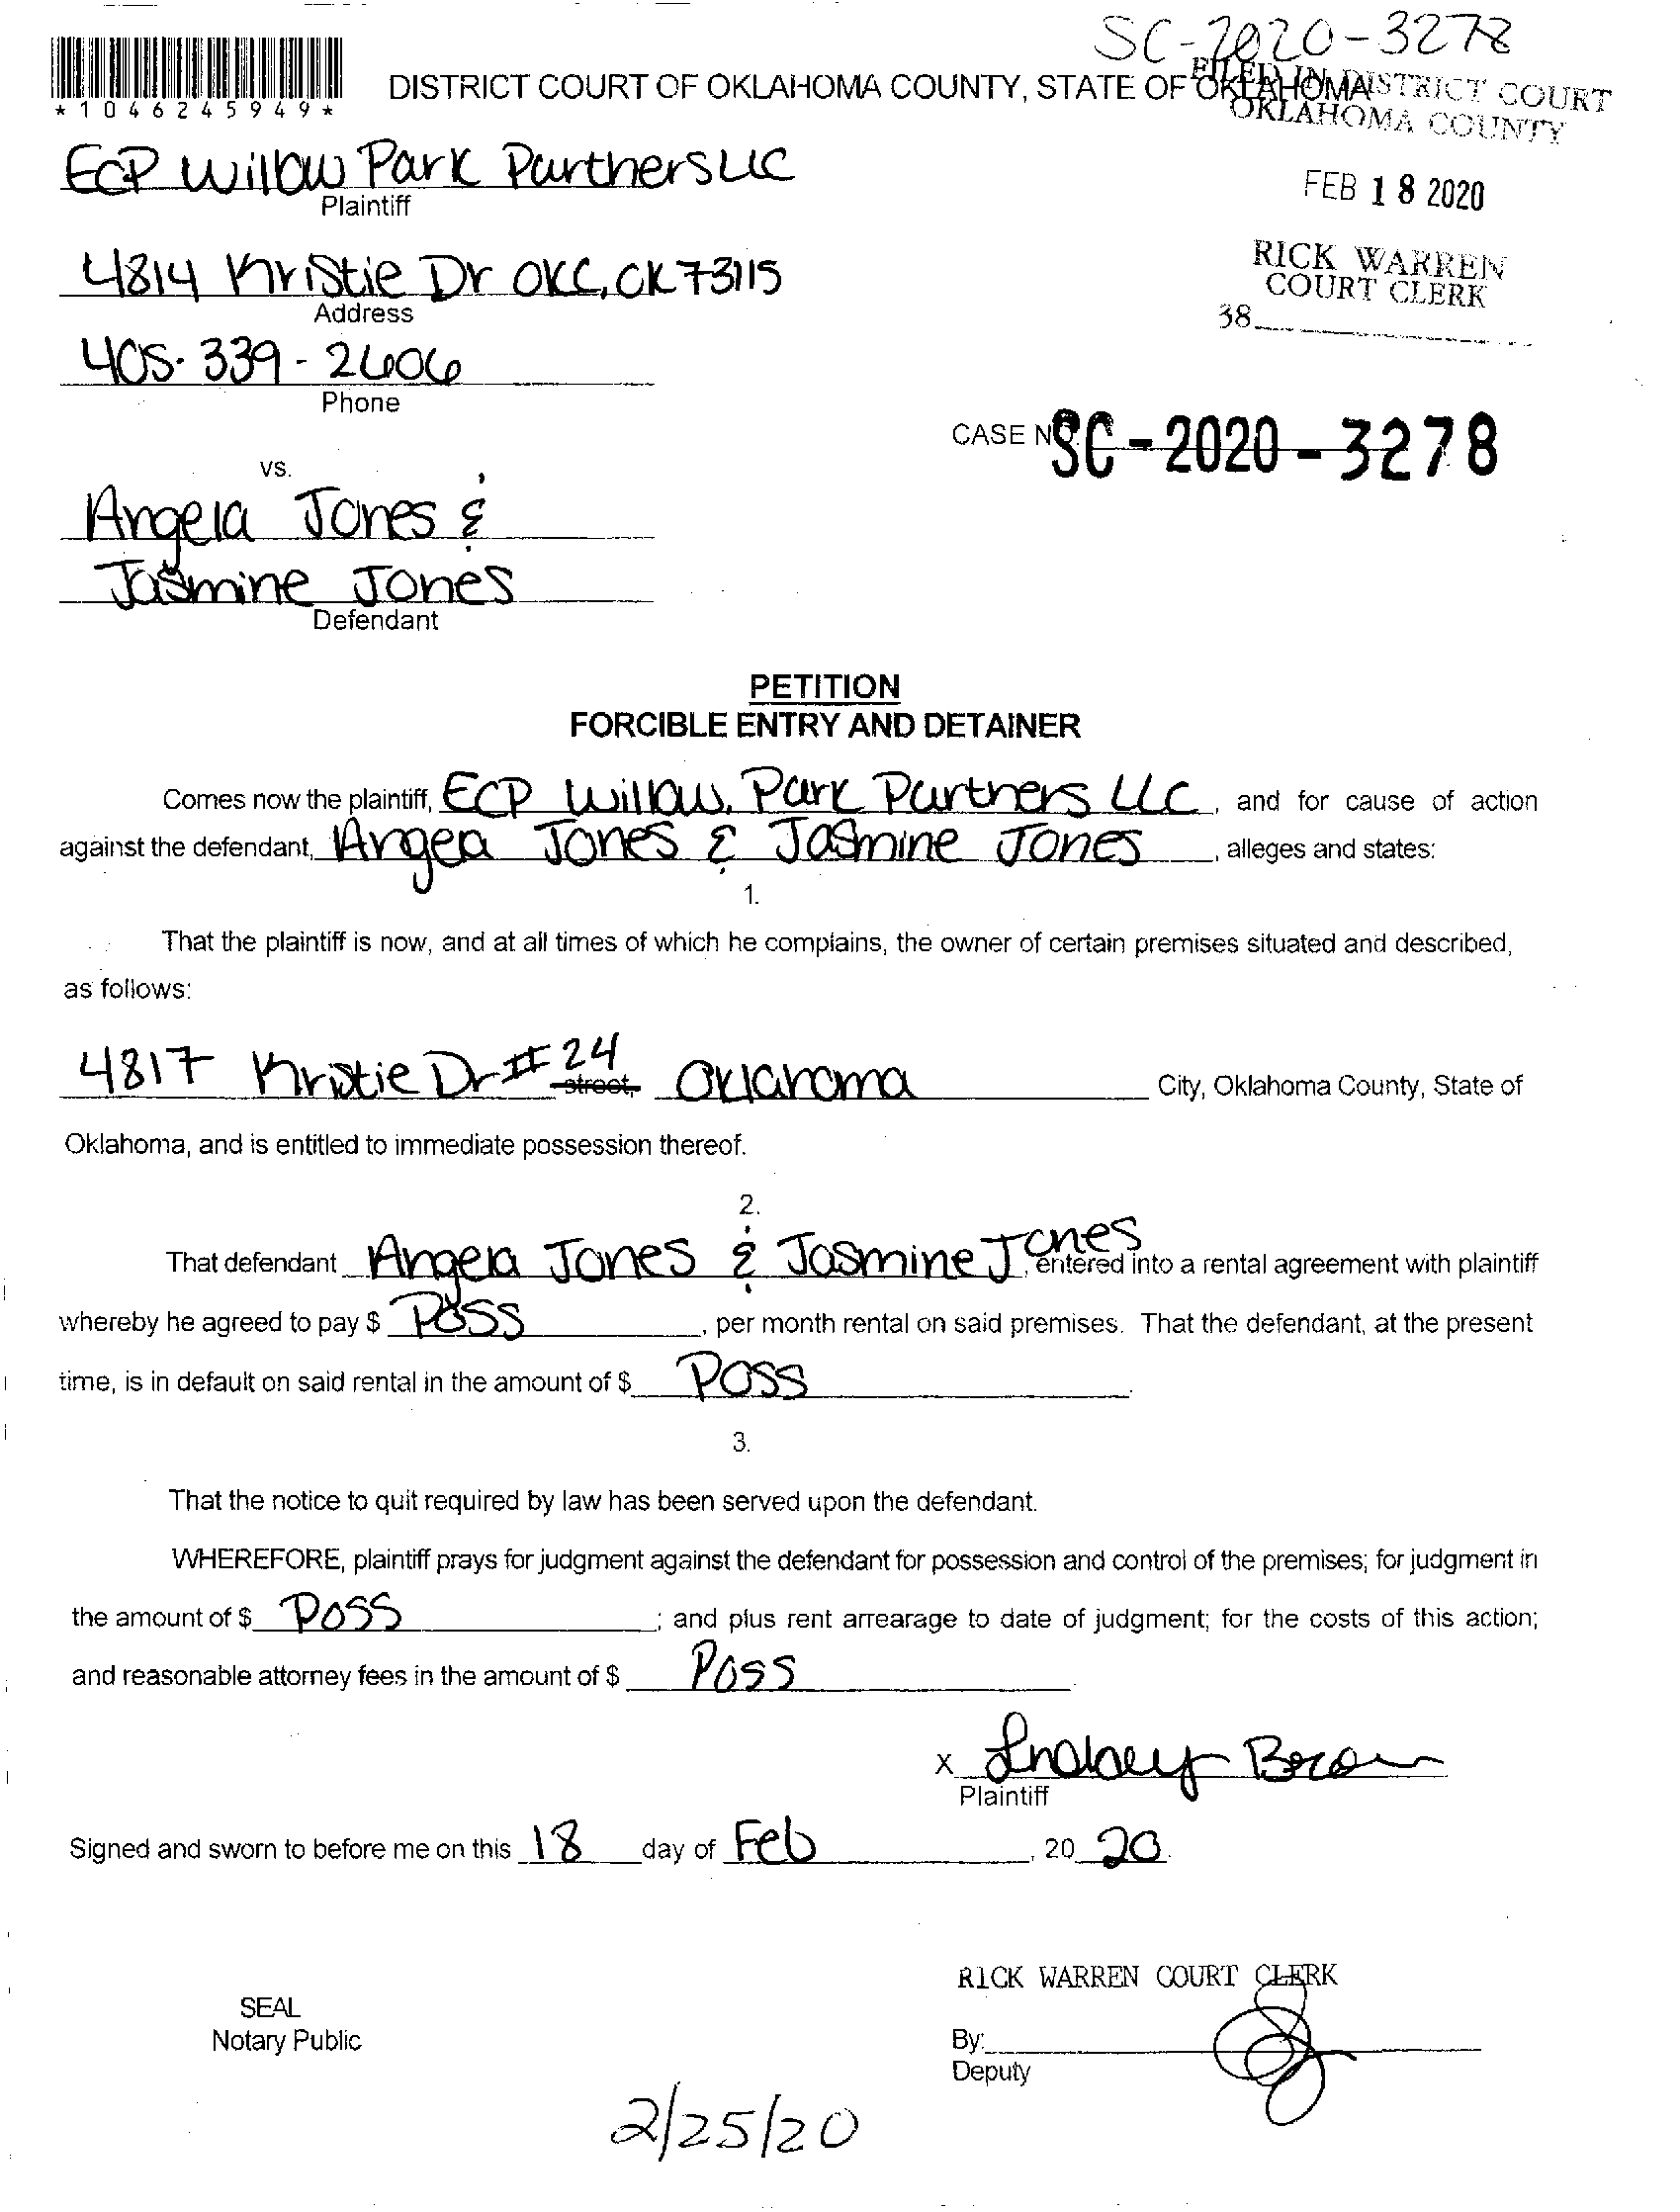 SC-2020-3278
*1046245949*
DISTRICT COURT OF OKLAHOMA COUNTY, STATE OF OKLAHOMA
FILED IN DISTRICT COURT
OKLAHOMA COUNTY
ECP Willow Park Partners LLC
Plaintiff
FEB 18 2020
4814 Kristie Dr OKC, OK 73115
Address
RICK WARREN
COURT CLERK
38
405-339-2606
Phone
CASE NO. SC-2020-3278
vs.
Angela Jones &
Jasmine Jones
Defendant
PETITION
FORCIBLE ENTRY AND DETAINER
Comes now the plaintiff, ECP Willow Park Partners LLC, and for cause of action
against the defendant, Angea Jones & Jasmine Jones, alleges and states:
1.
That the plaintiff is now, and at all times of which he complains, the owner of certain premises situated and described,
as follows:
4817 Kristie Dr #24 street, Oklahoma City, Oklahoma County, State of
Oklahoma, and is entitled to immediate possession thereof.
2.
That defendant Angela Jones & Jasmine Jones, entered into a rental agreement with plaintiff
whereby he agreed to pay $ Poss, per month rental on said premises. That the defendant, at the present
time, is in default on said rental in the amount of $ Poss.
3.
That the notice to quit required by law has been served upon the defendant.
WHEREFORE, plaintiff prays for judgment against the defendant for possession and control of the premises; for judgment in
the amount of $ Poss; and plus rent arrearage to date of judgment; for the costs of this action;
and reasonable attorney fees in the amount of $ Poss.
x Lindsey Brown
Plaintiff
Signed and sworn to before me on this 18 day of Feb, 20 20.
RICK WARREN COURT CLERK
SEAL
Notary Public
By:
Deputy
2/25/20